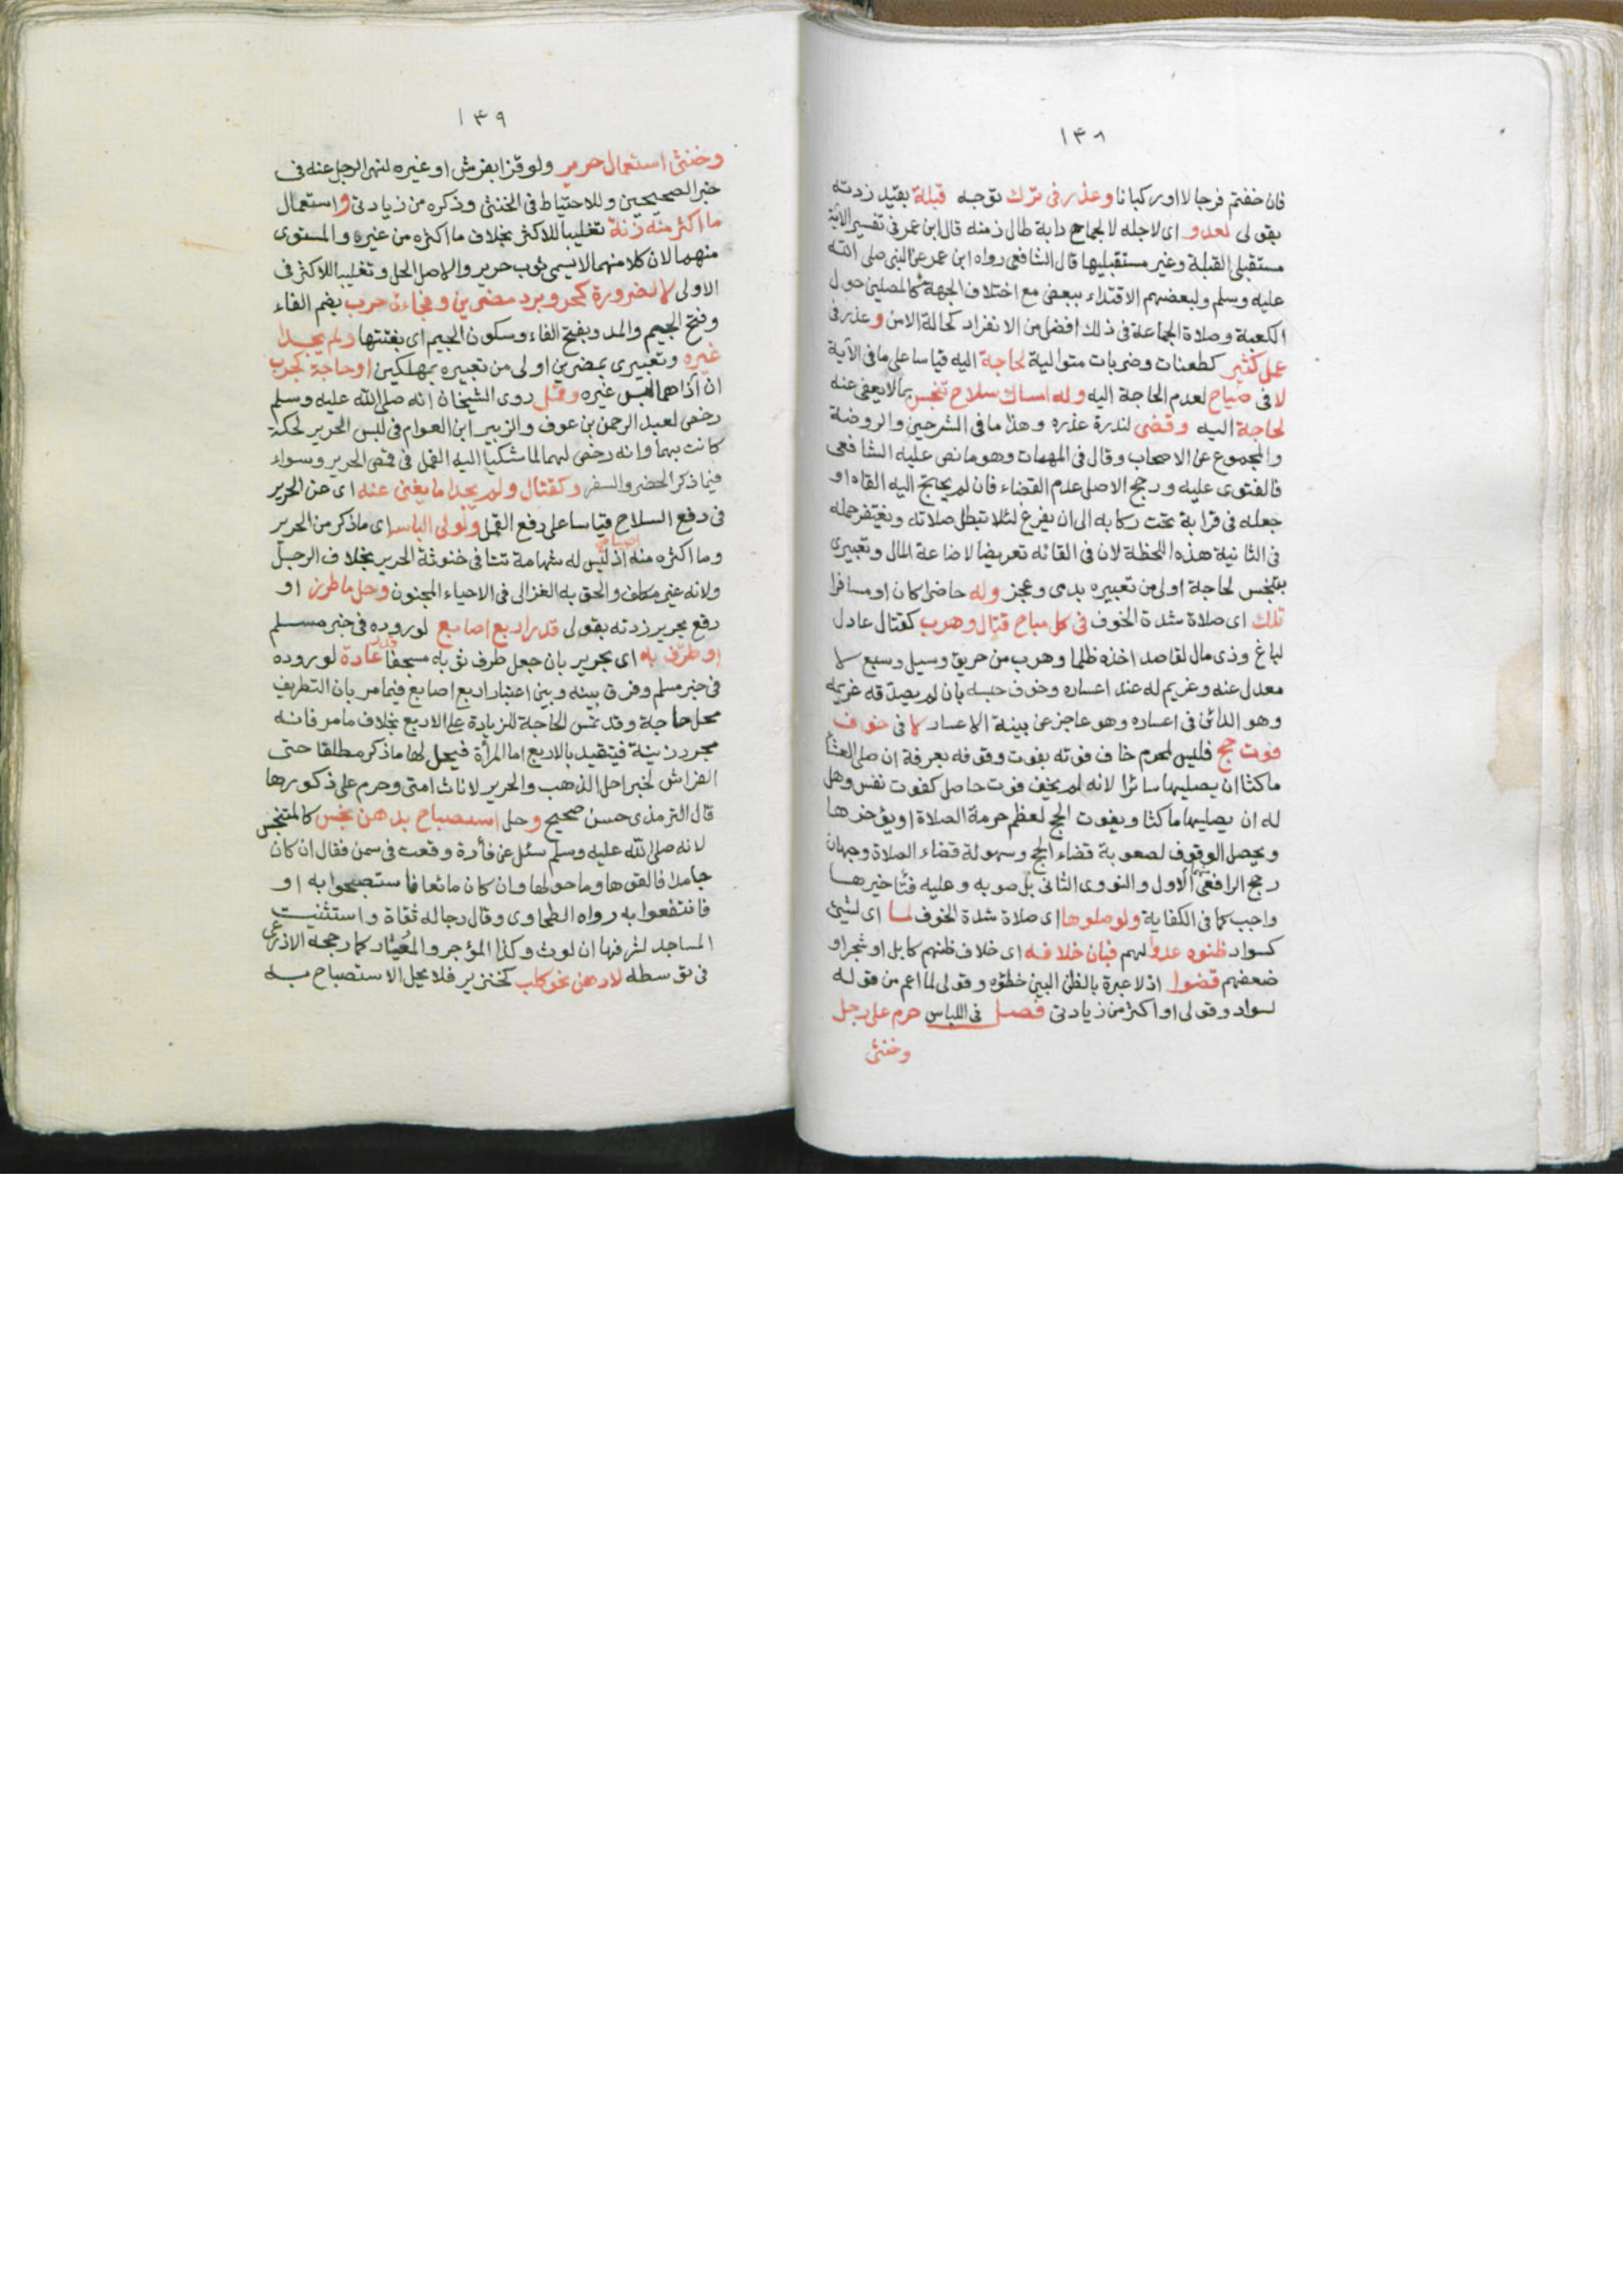 ١٤٨
فان خفتم فرجالا او ركبانا وعذر فى ترك توجه قبلة بقيد زدته
بقولى لعدو اى لاجله لا لجماح دابة طال زمنه قال ابن عمر فى تفسير الآية
مستقبلى القبلة وغير مستقبليها قال الشافعى رواه ابن عمر عن النبى صلى الله
عليه وسلم ولبعضهم الاقتداء ببعض مع اختلاف الجهة كالمصلين حول
الكعبة وصلاة الجماعة فى ذلك افضل من الانفراد كحالة الامن وعذر فى
عمل كثير كطعنات وضربات متوالية لحاجة اليه قياسا على ما فى الآية
لا فى صياح لعدم الحاجة اليه وله امساك سلاح تنجس بما لا يعفى عنه
لحاجة اليه وقضى لندرة عذره وهذا ما فى الشرحين والروضة
والمجموع عن الاصحاب وقال فى المهمات وهو ما نص عليه الشافعى
فالفتوى عليه ورجح الاصل عدم القضاء فان لم يحتج اليه القاه او
جعله فى قرابه تحت ركابه الى ان يفرغ لئلا تبطل صلاته ويغتفر حمله
فى الثانية هذه اللحظة لان فى القائه تعريضا لاضاعة المال وتعبيرى
بتنجس لحاجة اولى من تعبيره بدمى وعجز وله حاضرا كان او مسافرا
تلك اى صلاة شدة الخوف فى كل مباح قتال وهرب كقتال عادل
لباغ وذى مال لقاصد اخذه ظلما وهرب من حريق وسيل وسبع لا
معدل عنه وغريم له عند اعساره وخوف حبسه بان لم يصدقه غريمه
وهو الدائن فى اعساره وهو عاجز عن بينة الاعسار لا فى خوف
فوت حج فليس لمحرم خاف فوته بفوت وقوفه بعرفة ان صلى العشا
ماكثا ان يصليها سائرا لانه لم يخف فوت حاصل كفوت نفس وهل
له ان يصليها ماكثا ويفوت الحج لعظم حرمة الصلاة او يؤخرها
ويحصل الوقوف لصعوبة قضاء الحج وسهولة قضاء الصلاة وجهان
رجح الرافعى الاول والنووى الثانى بل صوبه وعليه فتأخيرها
واجب كما فى الكفاية ولو صلوها اى صلاة شدة الخوف لما اى لشئ
كسواد ظنوه عدوا لهم فبان خلافه اى خلاف ظنهم كابل او شجر او
ضعفهم قضوا اذ لا عبرة بالظن البين خطؤه وقولى لما اعم من قوله
لسواد وقولى او اكثر من زيادتى فصل فى اللباس حرم على رجل
وخنثى
١٤٩
وخنثى استعمال حرير ولو قزا بفرش او غيره لنهى الرجل عنه فى
خبر الصحيحين وللاحتياط فى الخنثى وذكره من زيادتى واستعمال
ما اكثر منه زنة تغليبا للاكثر بخلاف ما اكثره من غيره والمستوى
منهما لان كلا منهما لا يسمى ثوب حرير والاصل الحل وتغليبا للاكثر فى
الاولى لا لضرورة كحر وبرد مضرين وفجاءة حرب بضم الفاء
وفتح الجيم والمد وبفتح الفاء وسكون الجيم اى بغتتها ولم يجد
غيره وتعبيرى بمضرين اولى من تعبيره بمهلكين او حاجة كجرب
ان آذاهما لبس غيره وقمل روى الشيخان انه صلى الله عليه وسلم
رخص لعبد الرحمن بن عوف والزبير ابن العوام فى لبس الحرير لحكة
كانت بهما وانه رخص لهما لما شكيا اليه القمل فى قمص الحرير وسواء
فيما ذكر الحضر والسفر وكقتال ولم يجدا ما يغنى عنه اى عن الحرير
فى دفع السلاح قياسا على دفع القمل ولولى الباسه اى ما ذكر من الحرير
وما اكثره منه صبيا اذ ليس له شهامة تنافى خنوثة الحرير بخلاف الرجل
ولانه غير مكلف والحق به الغزالى فى الاحياء المجنون وحل ما طرز او
رقع بحرير زدته بقولى قدر اربع اصابع لوروده فى خبر مسلم
او طرف به اى بحرير بان جعل طرف ثوبه مسجفا قدر عادة لوروده
فى خبر مسلم وفرق بينه وبين اعتبار اربع اصابع فيما مر بان التطريف
محل حاجة وقد تمس الحاجة للزيادة على الاربع بخلاف ما مر فانه
مجرد زينة فيتقيد بالاربع اما المرأة فيحل لها ما ذكر مطلقا حتى
الفراش لخبر احل الذهب والحرير لاناث امتى وحرم على ذكورها
قال الترمذى حسن صحيح وحل استصباح بدهن نجس كالمتنجس
لانه صلى الله عليه وسلم سئل عن فأرة وقعت فى سمن فقال ان كان
جامدا فالقوها وما حولها وان كان مائعا فاستصبحوا به او
فانتفعوا به رواه الطحاوى وقال رجاله ثقاة واستثنيت
المساجد لشرفها ان لوث وكذا المؤجر والمعار كما رجحه الاذرعى
فى توسطه لا دهن نحو كلب كخنزير فلا يحل الاستصباح به